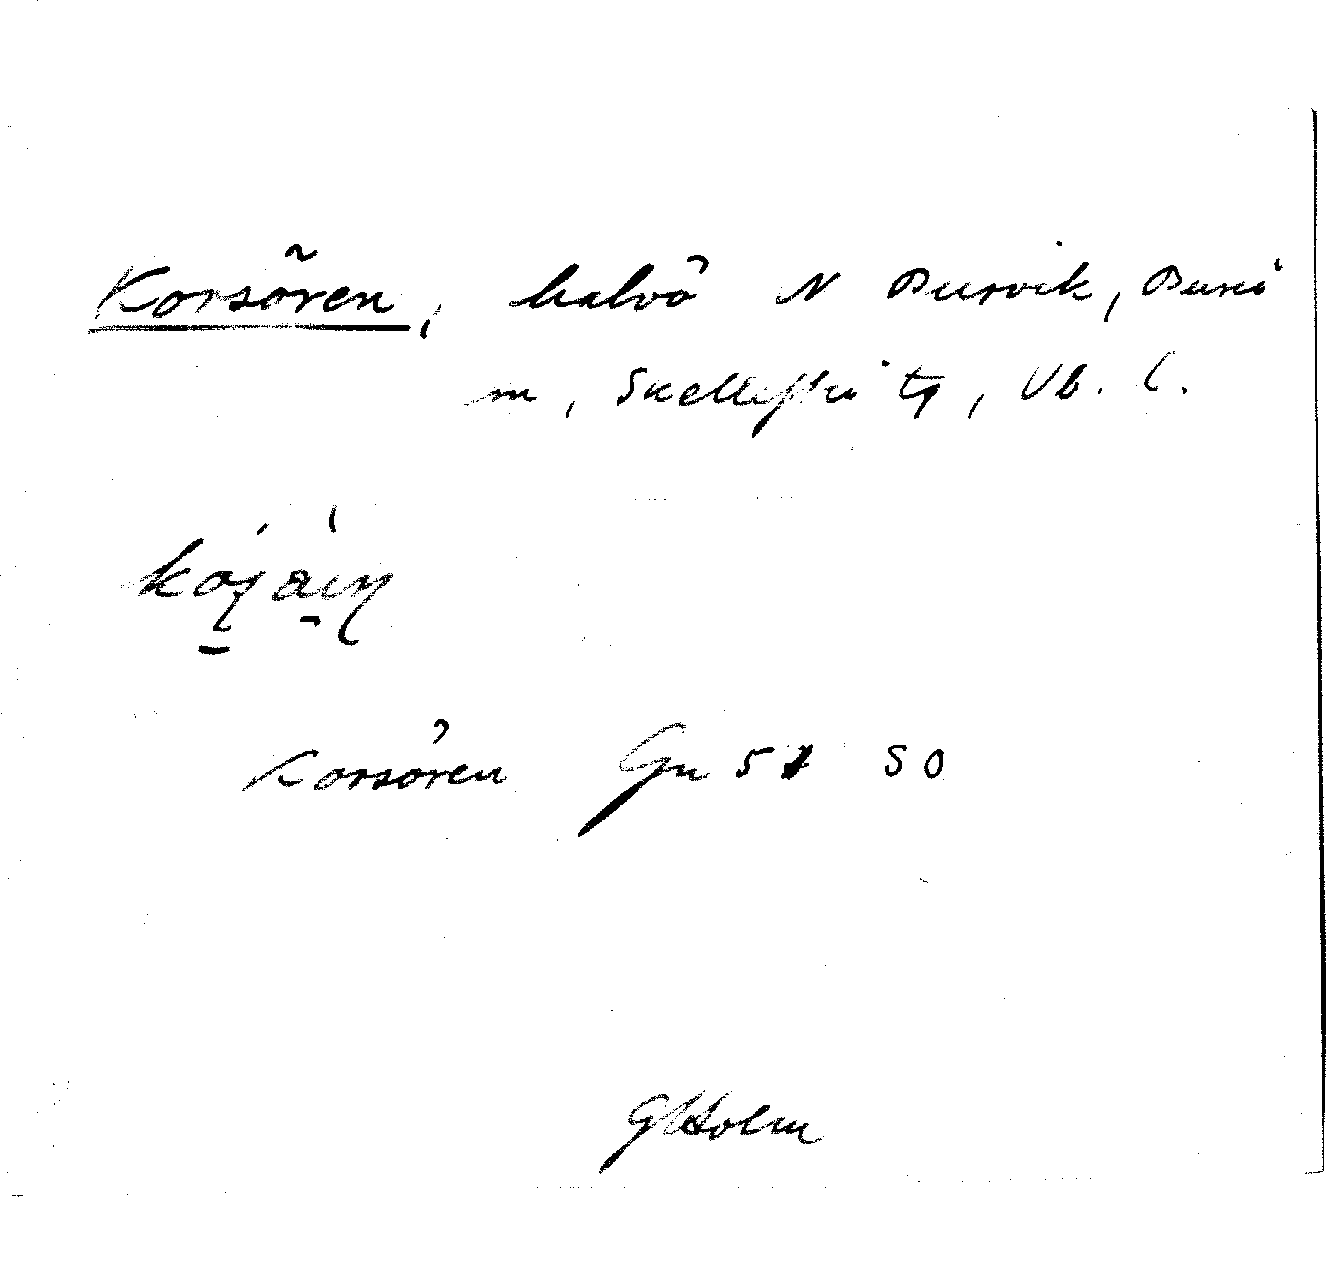 Korsören, halvö N Bursvik, Bureå
sn, Skellefteå tg, Vb. l.
Korsören Gn 57 SO
GHolm